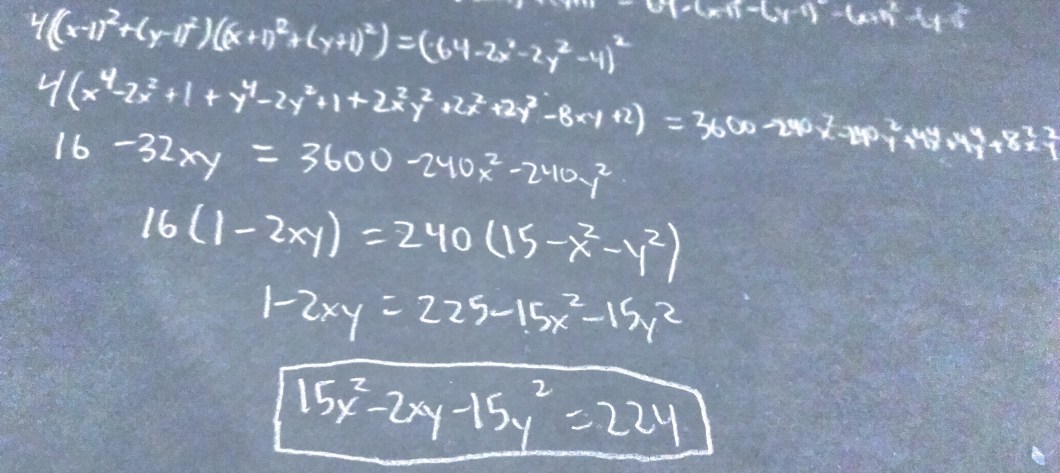 = 64-(x-1)²-(y-1)²-(x+1)²-(y+1)²
4((x-1)²+(y-1)²)((x+1)²+(y+1)²)=(64-2x²-2y²-4)²
4(x⁴-2x²+1+y⁴-2y²+1+2x²y²+2x²+2y²-8xy+2) = 3600-240x²-240y²+4x⁴+4y⁴+8x²y²
16 -32xy = 3600-240x²-240y²
16(1-2xy) = 240(15-x²-y²)
1-2xy = 225-15x²-15y²
15x²-2xy-15y² = 224